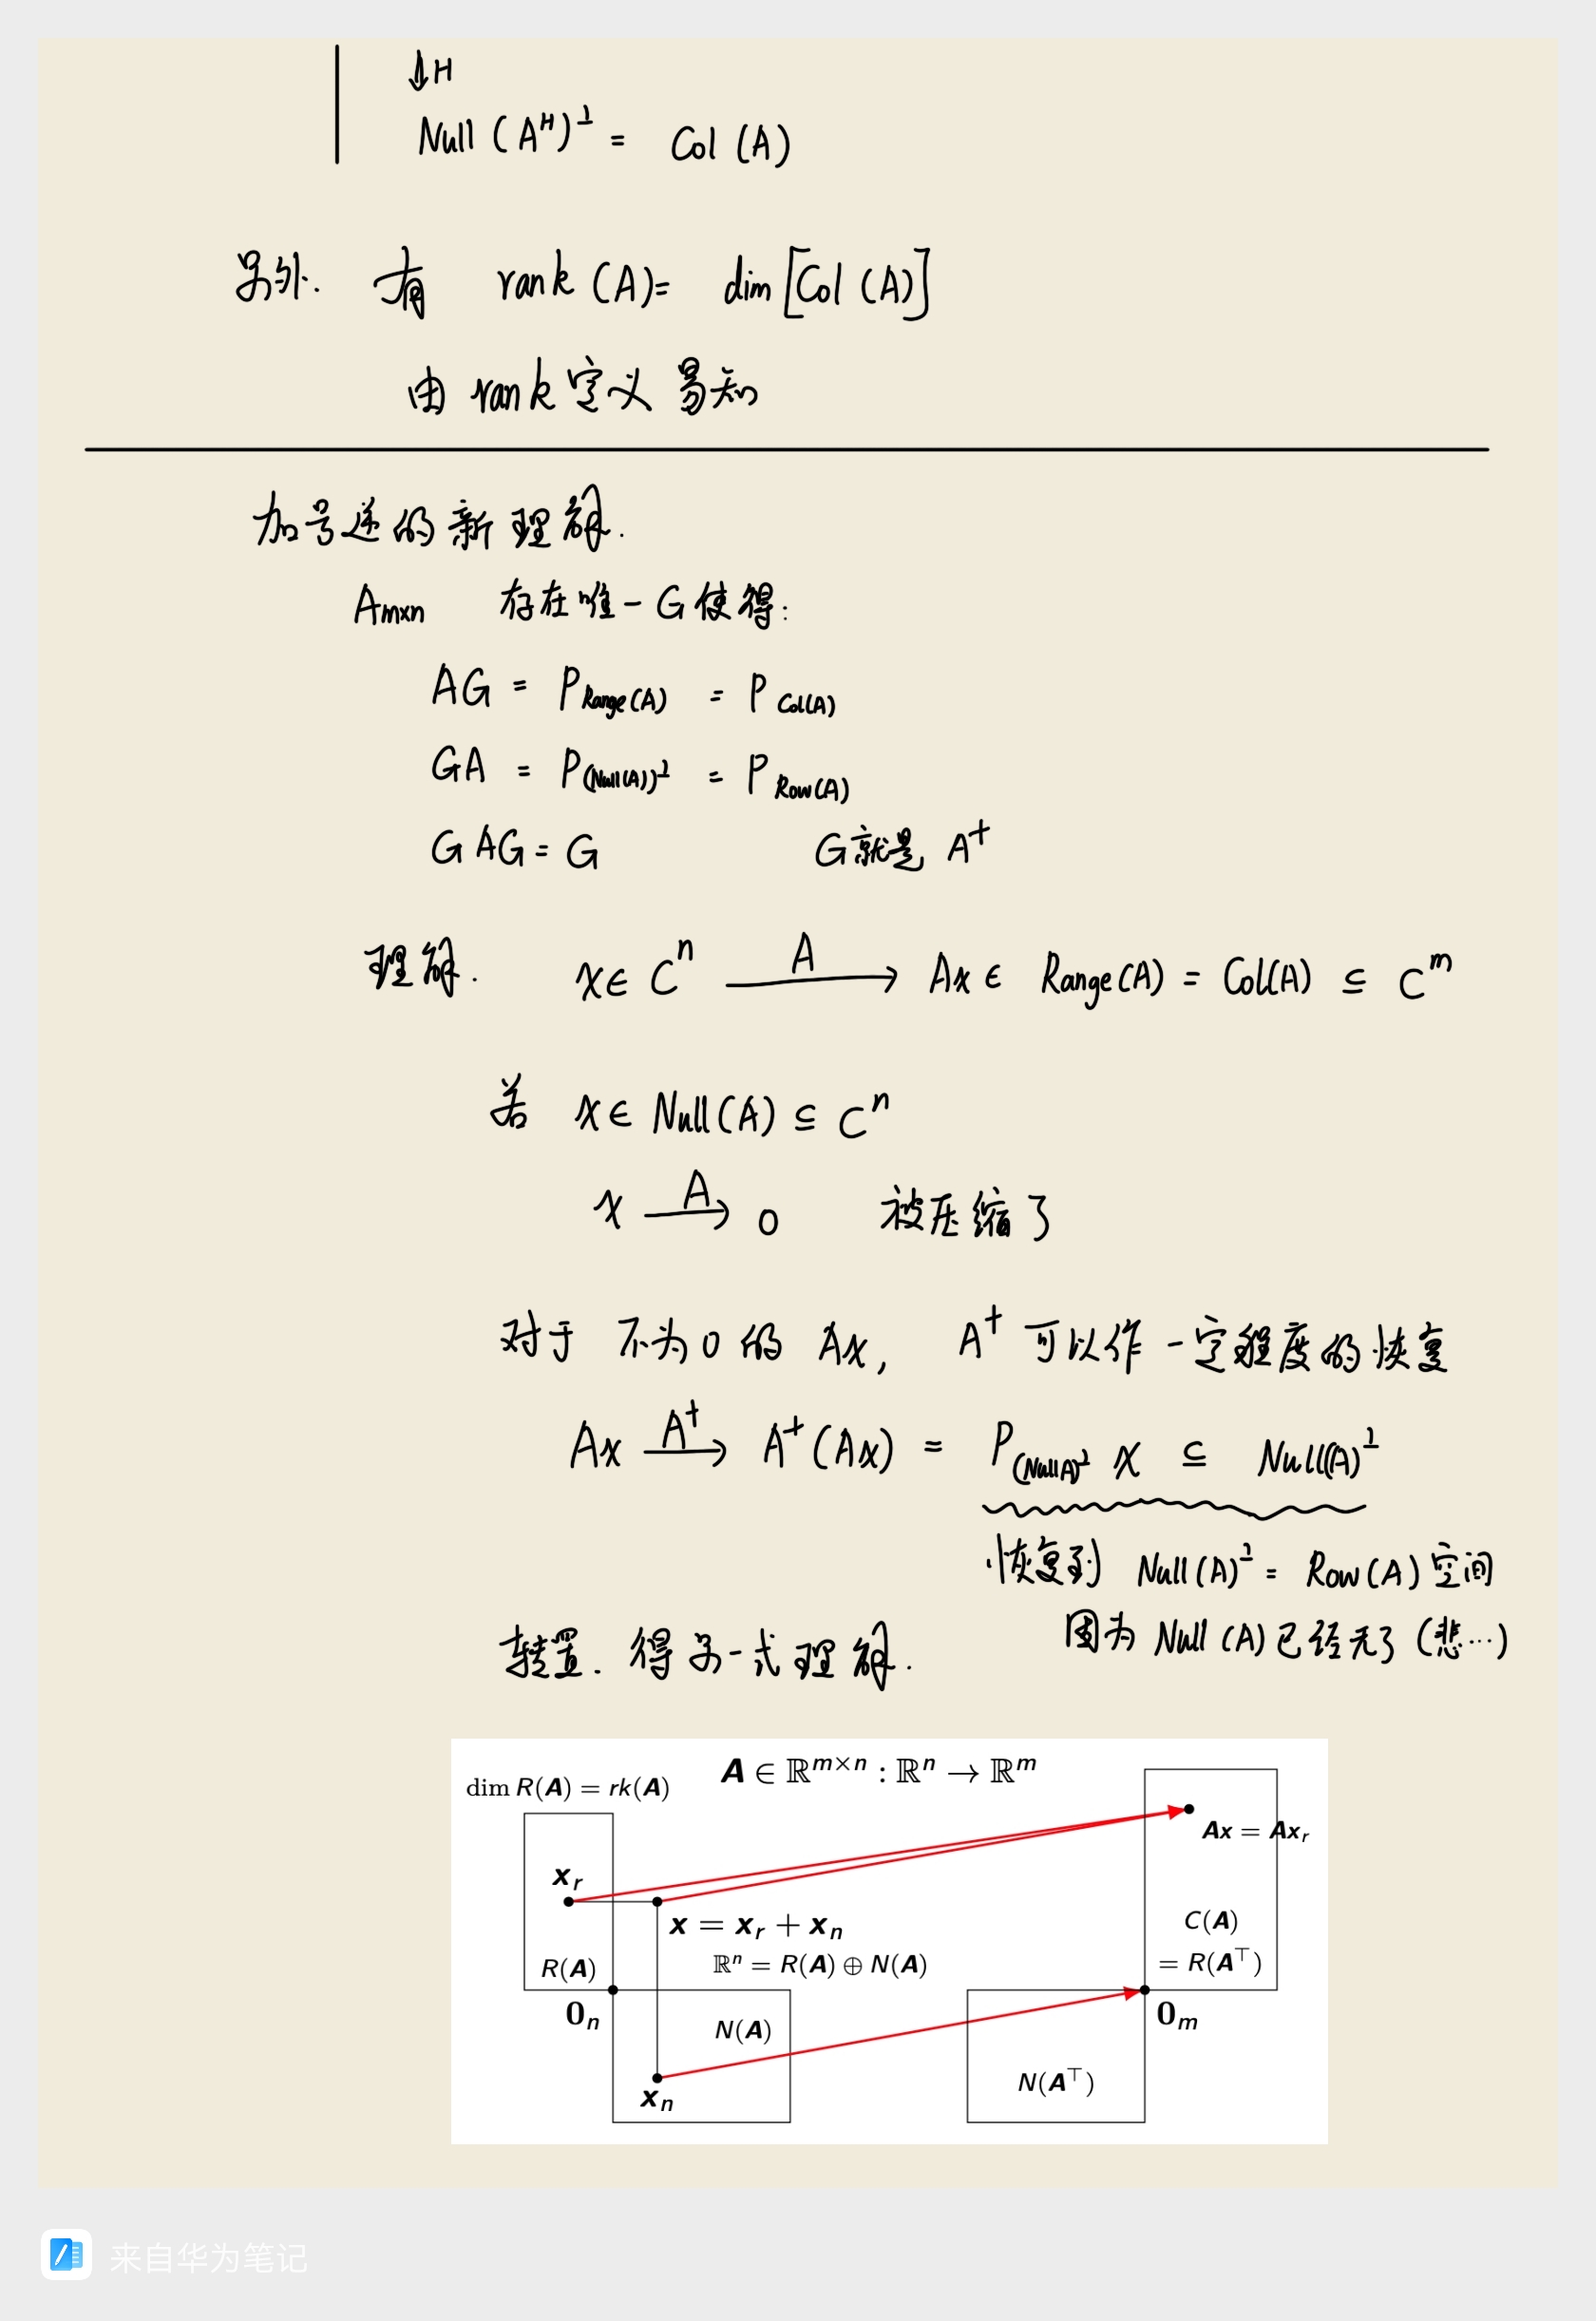 ⇓H
Null (Aᴴ)^⊥ = Col (A)
另外. 有 rank (A) = dim [Col (A)]
由 rank 定义 易知
加号逆的新理解.
Aₘₓₙ 存在唯一 G 使得:
AG = P_Range(A) = P_Col(A)
GA = P_(Null(A))^⊥ = P_Row(A)
GAG = G G就是 A⁺
理解. x ∈ Cⁿ —A→ Ax ∈ Range(A) = Col(A) ⊆ Cᵐ
若 x ∈ Null(A) ⊆ Cⁿ
x —A→ 0 被压缩了
对于 不为0的 Ax, A⁺ 可以作一定程度的恢复
Ax —A⁺→ A⁺(Ax) = P_(Null A)^⊥ x ⊆ Null(A)^⊥
恢复到 Null(A)^⊥ = Row(A)空间
因为 Null (A) 已经无了 (悲…)
转置. 得另一式理解.
A ∈ ℝ^{m×n} : ℝⁿ → ℝᵐ
dim R(A) = rk(A)
Ax = Axᵣ
xᵣ
x = xᵣ + xₙ
C(A)
= R(A^⊤)
R(A)
ℝⁿ = R(A) ⊕ N(A)
0ₙ
0ₘ
N(A)
N(A^⊤)
xₙ
来自华为笔记